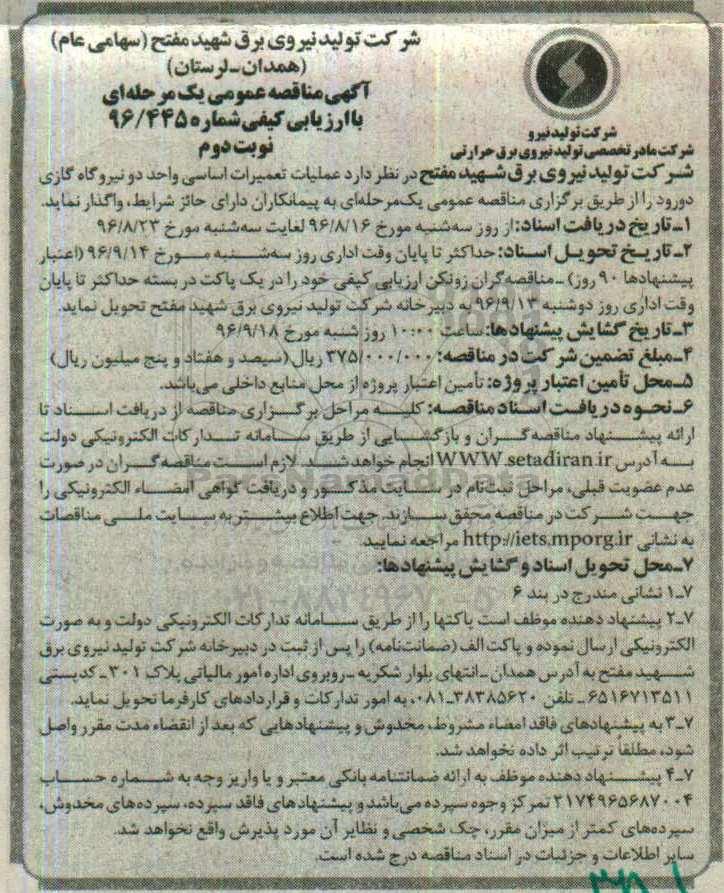 شرکت تولید نیروی برق شهید مفتح (سهامی عام)
(همدان-لرستان)
آگهی مناقصه عمومی یک مرحله‌ای
با ارزیابی کیفی شماره ۹۶/۴۴۵
نوبت دوم
شرکت تولید نیرو
شرکت مادر تخصصی تولید نیروی برق حرارتی
شرکت تولید نیروی برق شهید مفتح در نظر دارد عملیات تعمیرات اساسی واحد دو نیروگاه گازی
دورود را از طریق برگزاری مناقصه عمومی یک‌مرحله‌ای به پیمانکاران دارای حائز شرایط، واگذار نماید.
۱ـ تاریخ دریافت اسناد: از روز سه‌شنبه مورخ ۹۶/۸/۱۶ لغایت سه‌شنبه مورخ ۹۶/۸/۲۳
۲ـ تاریخ تحویل اسناد: حداکثر تا پایان وقت اداری روز سه‌شنبه مورخ ۹۶/۹/۱۴ (اعتبار
پیشنهادها ۹۰ روز) ـ مناقصه‌گران رونکن ارزیابی کیفی خود را در یک پاکت در بسته حداکثر تا پایان
وقت اداری روز دوشنبه ۹۶/۹/۱۳ به دبیرخانه شرکت تولید نیروی برق شهید مفتح تحویل نماید.
۳ـ تاریخ گشایش پیشنهادها: ساعت ۱۰:۰۰ روز شنبه مورخ ۹۶/۹/۱۸
۴ـ مبلغ تضمین شرکت در مناقصه: ۳۷۵/۰۰۰/۰۰۰ ریال (سیصد و هفتاد و پنج میلیون ریال)
۵ـ محل تأمین اعتبار پروژه: تأمین اعتبار پروژه از محل منابع داخلی می‌باشد.
۶ـ نحوه دریافت اسناد مناقصه: کلیه مراحل برگزاری مناقصه از دریافت اسناد تا
ارائه پیشنهاد مناقصه‌گران و بازگشایی از طریق سامانه تدارکات الکترونیکی دولت
به آدرس WWW.setadiran.ir انجام خواهد شد. لازم است مناقصه‌گران در صورت
عدم عضویت قبلی، مراحل ثبت‌نام در سایت مذکور و دریافت گواهی امضاء الکترونیکی را
جهت شرکت در مناقصه محقق سازند. جهت اطلاع بیشتر به سایت ملی مناقصات
به نشانی http://iets.mporg.ir مراجعه نمایید.
۷ـ محل تحویل اسناد و گشایش پیشنهادها:
۷ـ۱ نشانی مندرج در بند ۶
۷ـ۲ پیشنهاد دهنده موظف است پاکتها را از طریق سامانه تدارکات الکترونیکی دولت و به صورت
الکترونیکی ارسال نموده و پاکت الف (ضمانت‌نامه) را پس از ثبت در دبیرخانه شرکت تولید نیروی برق
شهید مفتح به آدرس همدان ـ انتهای بلوار شکریه ـ روبروی اداره امور مالیاتی پلاک ۳۰۱ ـ کدپستی
۶۵۱۶۷۱۳۵۱۱ ـ تلفن ۳۸۳۸۵۶۲۰-۰۸۱، به امور تدارکات و قراردادهای کارفرما تحویل نماید.
۷ـ۳ به پیشنهادهای فاقد امضاء مشروط، مخدوش و پیشنهادهایی که بعد از انقضاء مدت مقرر واصل
شود، مطلقاً ترتیب اثر داده نخواهد شد.
۷ـ۴ پیشنهاد دهنده موظف به ارائه ضمانتنامه بانکی معتبر و یا واریز وجه به شماره حساب
۲۱۷۴۹۶۵۶۸۷۰۰۴ تمرکز وجوه سپرده می‌باشد و پیشنهادهای فاقد سپرده، سپرده‌های مخدوش،
سپرده‌های کمتر از میزان مقرر، چک شخصی و نظایر آن مورد پذیرش واقع نخواهد شد.
سایر اطلاعات و جزئیات در اسناد مناقصه درج شده است.